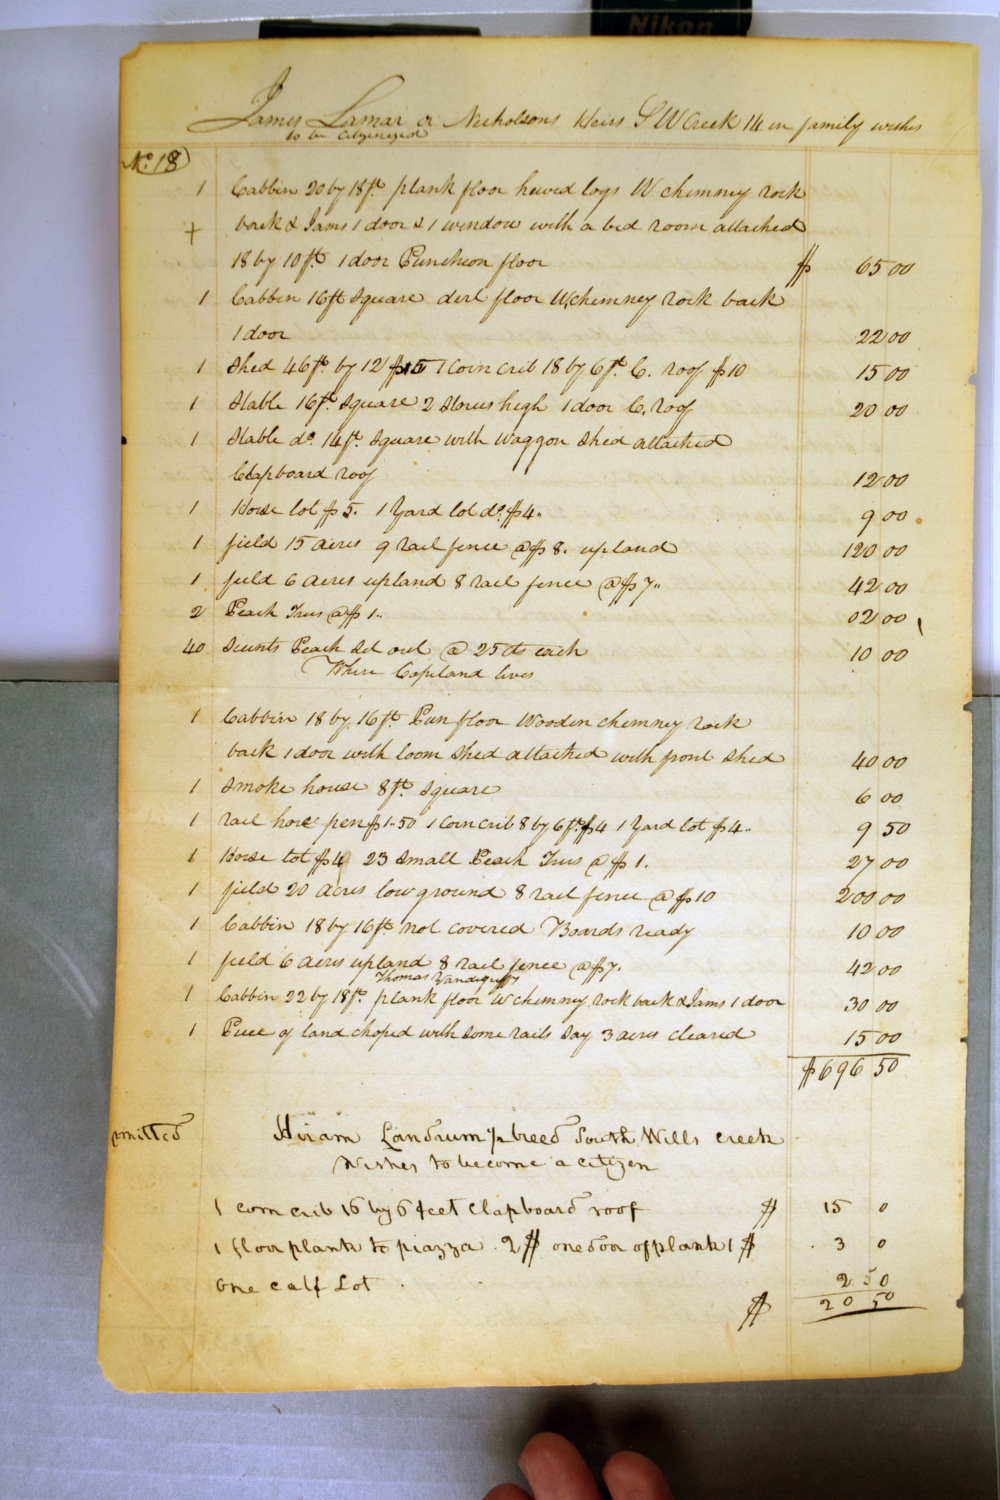 Nikon
James Lamar or Nicholsons Heirs S W Creek 14 in family wishes
to be Citizenized
No. 18
1 Cabbin 20 by 18 ft. plank floor hewed logs W chimney rock
+ back & Jams 1 door & 1 window with a bed room attached
18 by 10 ft. 1 door Puncheon floor $ 65 00
1 Cabbin 16 ft square dirt floor W, chimney rock back
1 door 22 00
1 Shed 46 ft. by 12 1 Corn crib 18 by 6 ft. C. roof $10 15 00
1 Stable 16 ft. square 2 Stories high 1 door C, roof 20 00
1 Stable do. 14 ft. square with Waggon shed attached
Clapboard roof 12 00
1 Horse lot $5. 1 Yard lot do. $4. 9 00
1 field 15 acres 9 rail fence @ $8. upland 120 00
1 field 6 acres upland 8 rail fence @ $7.. 42 00
2 Peach Trees @ $1.. 02 00
40 Peach Set out @ 25 cts each 10 00
Where Copeland lives
1 Cabbin 18 by 16 ft. Pun floor Wooden chimney rock
back 1 door with loom shed attached with front shed 40 00
1 Smoke house 8 ft. square 6 00
1 rail pen $1.50 1 Corn crib 8 by 6 ft. $4 1 Yard lot $4.. 9 50
1 Horse lot $4 23 Small Peach Trees @ $1. 27 00
1 field 20 acres low ground 8 rail fence @ $10 200 00
1 Cabbin 18 by 16 ft. not covered Boards ready 10 00
1 field 6 acres upland 8 rail fence @ $7. 42 00
Thomas Vandegriff
1 Cabbin 22 by 18 ft. plank floor W chimney rock back & Jams 1 door 30 00
1 Piece of land choped with some rails say 3 acres cleared 15 00
$ 696 50
omitted Hiram Landrum ½ breed South Wills creek
Wishes to become a citizen
1 corn crib 16 by 6 feet Clapboard roof $ 15 0
1 floor plank to piazza. 2 $ one door of plank 1 $ 3 0
One calf Lot 2 50
$ 20 50